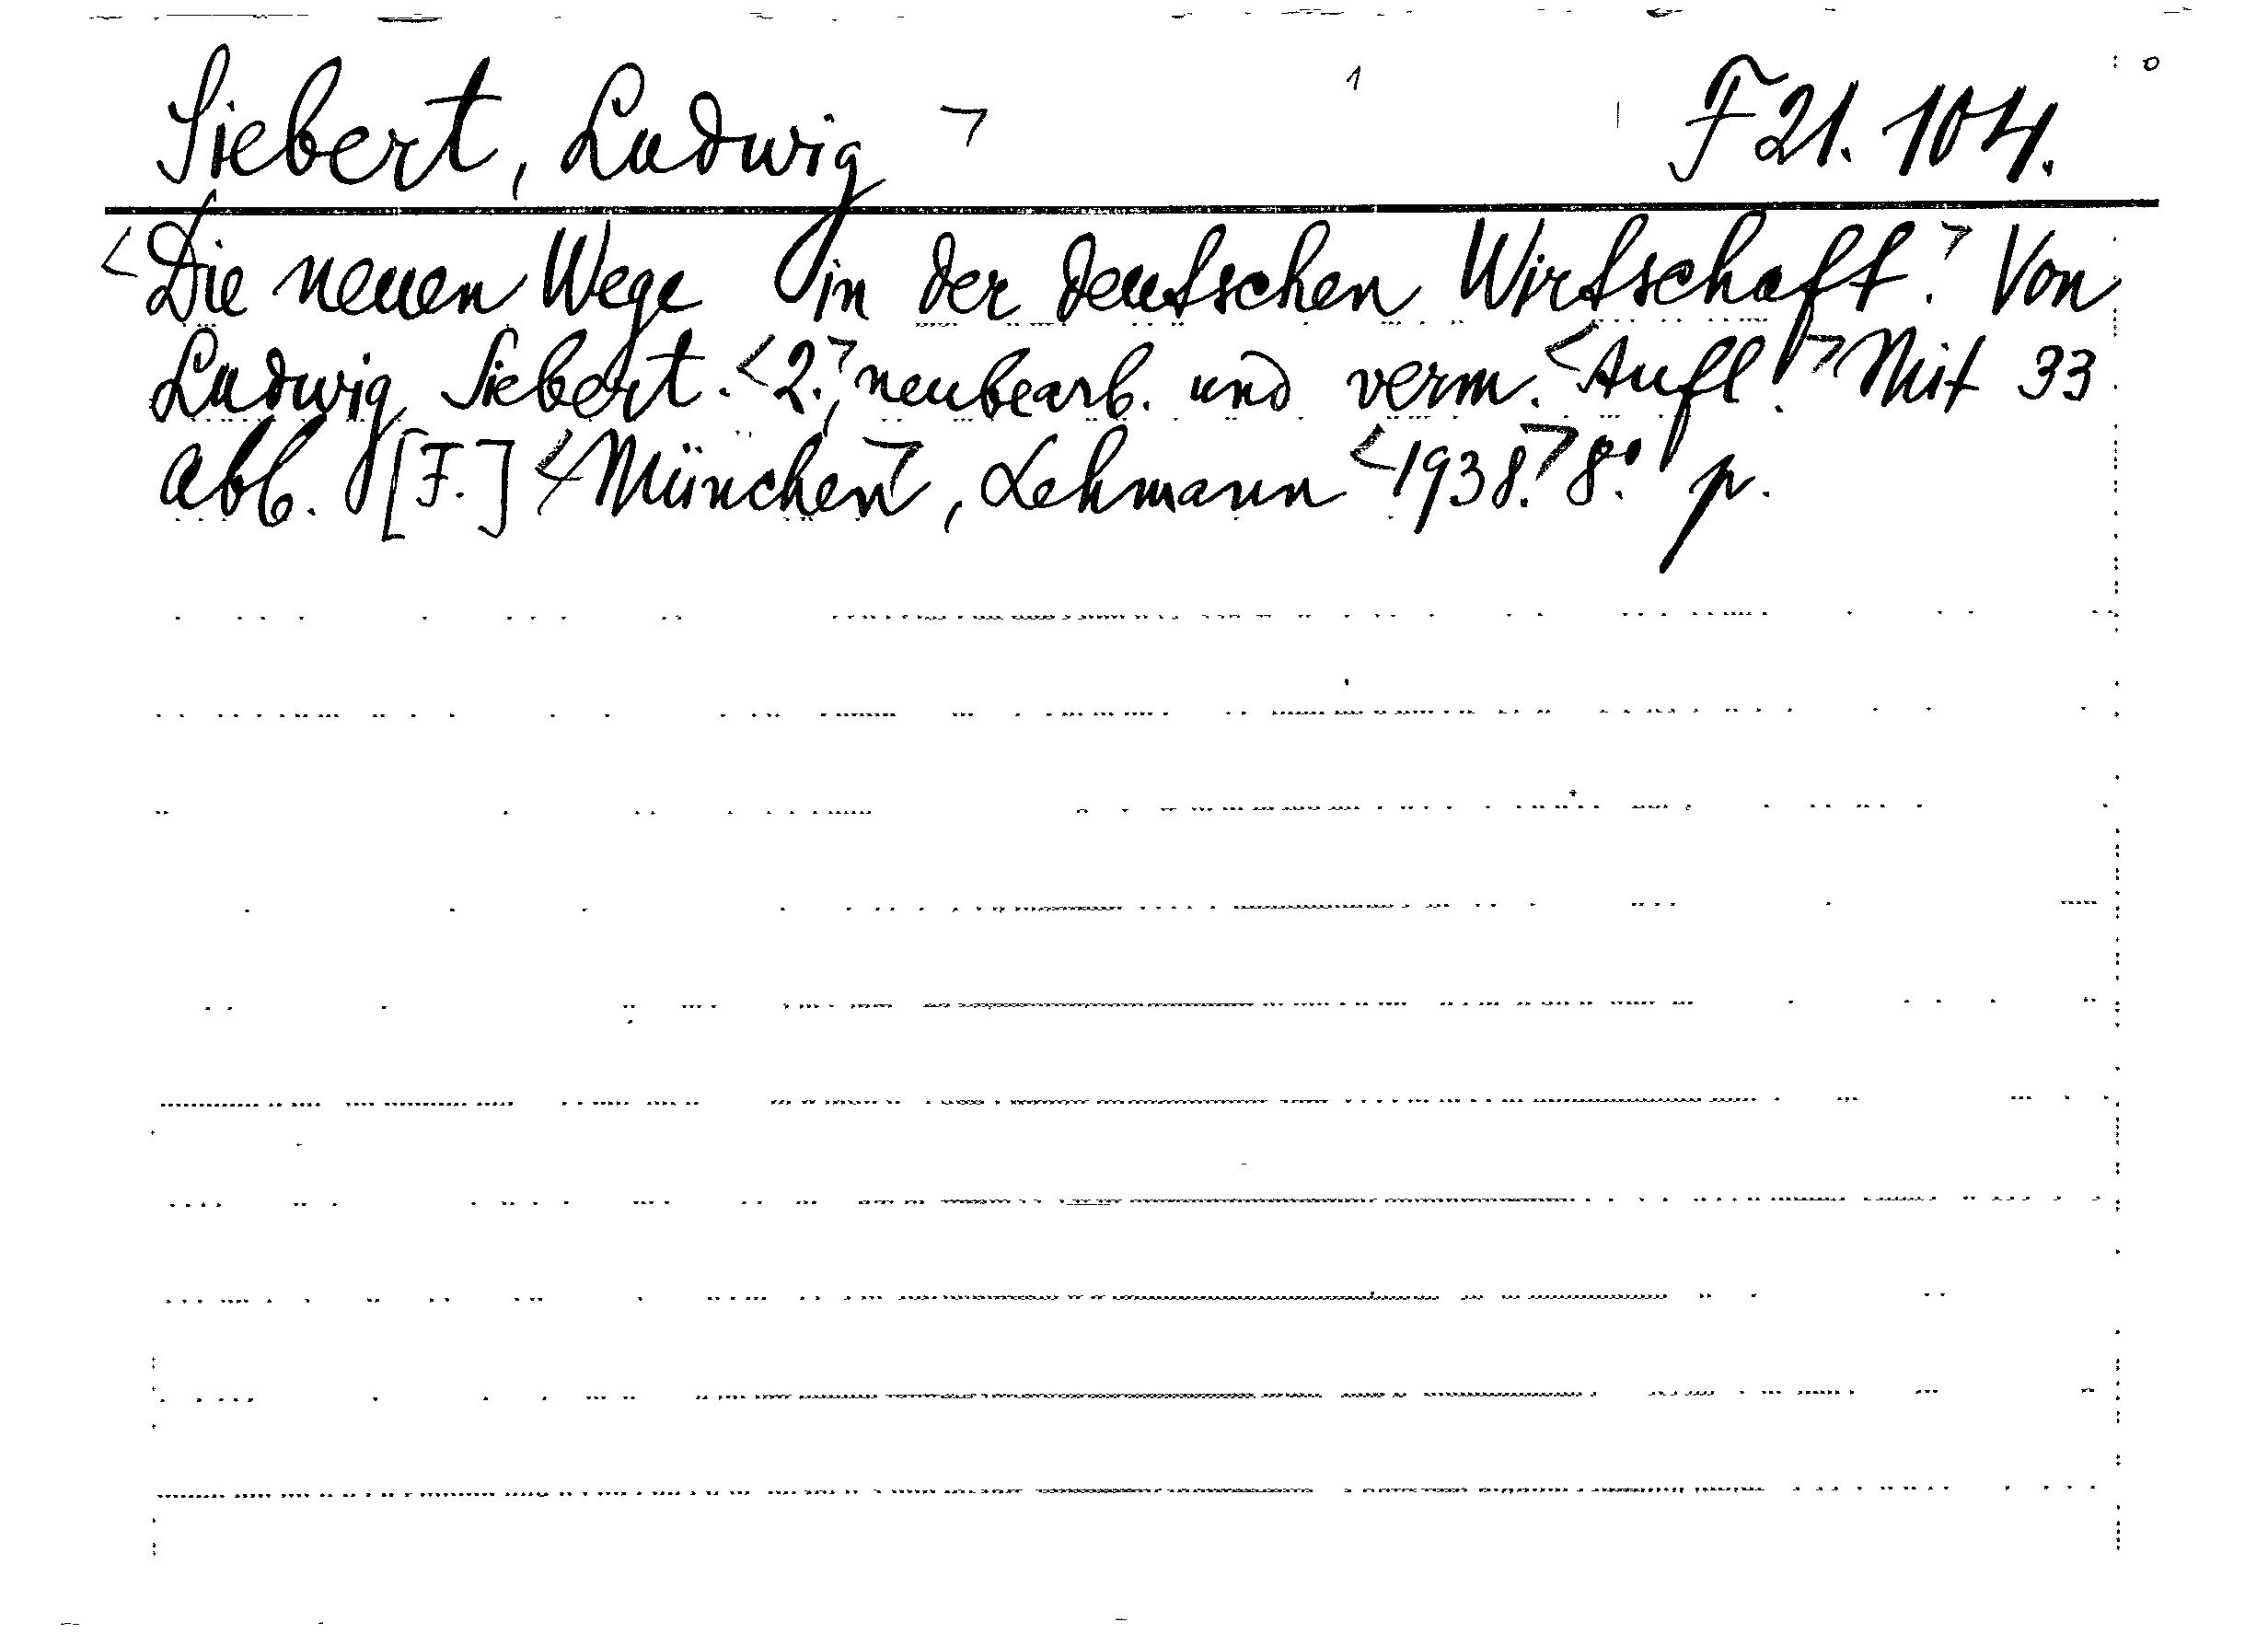 Siebert, Ludwig ¬ 1 F 21. 104.
<Die neuen Wege in der deutschen Wirtschaft.¬ Von
Ludwig Siebert. <2.,¬ neubearb. und verm. <Aufl.¬ Mit 33
Abb. [F.] <München¬, Lehmann <1938.¬ 8.° p.